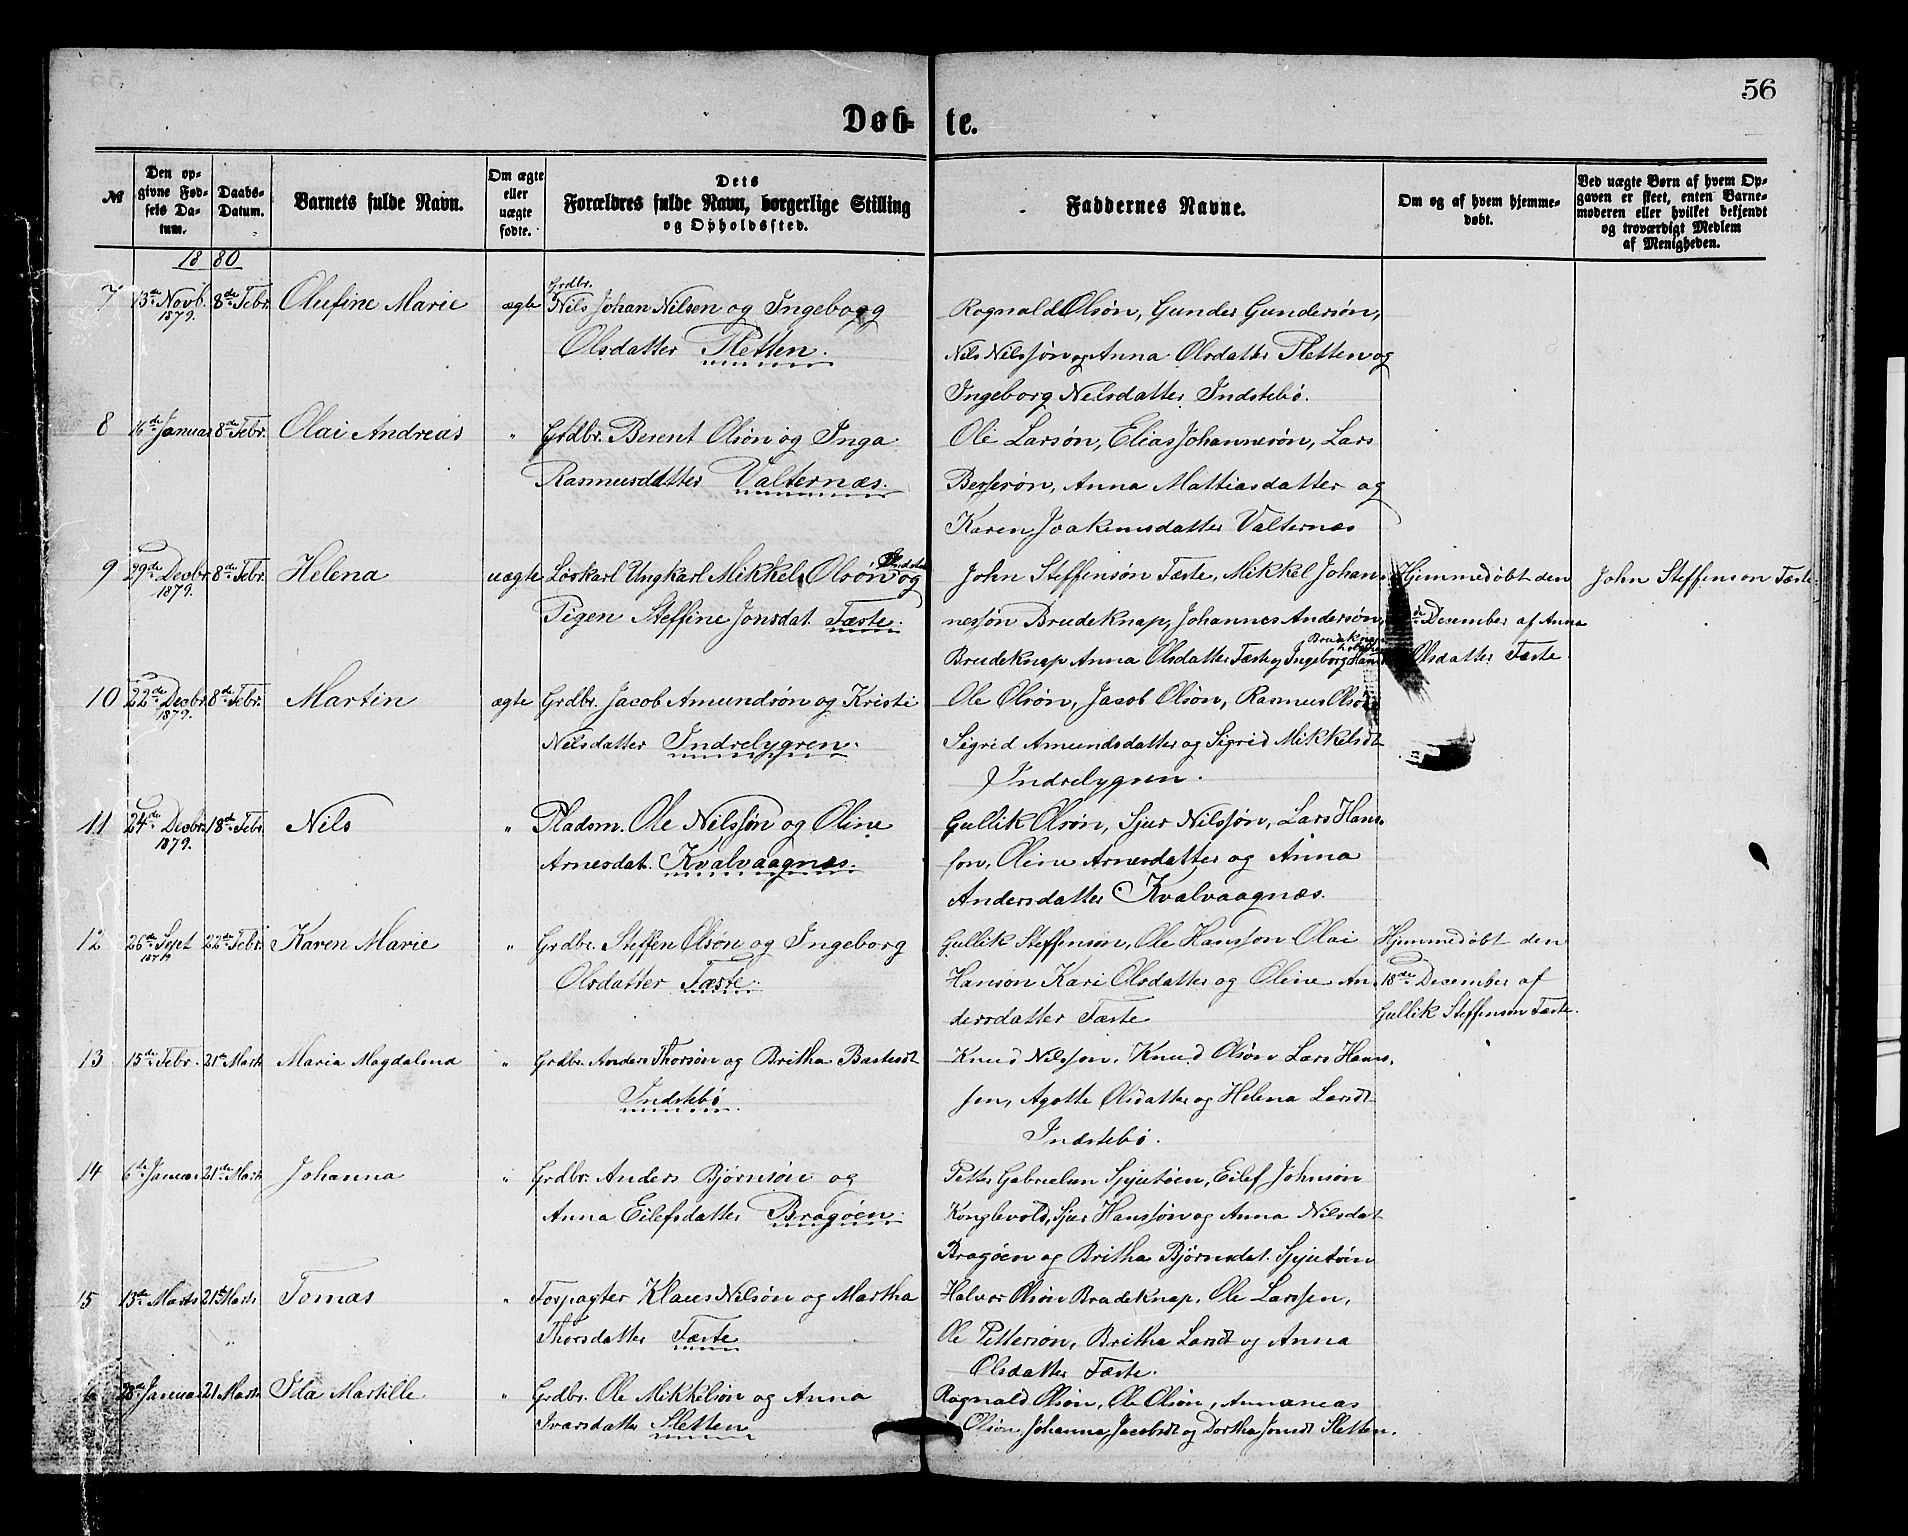 56
Døb= te.
№
Den op-
givne Fød-
sels Da-
tum.
Daabs-
Datum.
Barnets fulde Navn.
Om ægte
eller
uægte
fødte.
Dets
Forældres fulde Navn, borgerlige Stilling
og Opholdssted.
Faddernes Navne.
Om og af hvem hjemme-
døbt.
Ved uægte Børn af hvem Op-
gaven er skeet, enten Barne-
moderen eller hvilket bekjendt
og troværdigt Medlem
af Menigheden.
1880
7 13de Novb. 1879. 8de Febr. Olufine Marie ægte Grdbr. Nils Johan Nilsen og Ingeborg
Olsdatter Sletten.
Rognald Olsøn, Gunder Gundersøn,
Nils Nilssøn og Anna Olsdatter Sletten og
Ingeborg Nilsdatter Indstebø.
8 16de Januar 8de Febr. Olai Andreas " Grdbr. Berent Olsøn og Inga
Rasmusdatter Valternæs.
Ole Larsøn, Elias Johannesøn, Lars
Bessesøn, Anna Mattiasdatter og
Karen Joakimsdatter Valternæs
9 29de Decbr. 1879. 8de Febr. Helena uægte Løskarl Ungkarl Mikkel Olsøn og
Pigen Steffine Jonsdat. Fæste.
John Steffensøn Fæste, Mikkel Johan-
nessøn Brudeknap, Johannes Andersøn,
Brudeknap Anna Olsdatter Fæste og Ingeborg Hans
Brudeknap
Hjemmedøbt den
de December af Anna
Olsdatter Fæste
John Steffenson Fæste.
10 22de Decbr. 1879. 8de Febr. Martin ægte Grdbr. Jacob Amundsøn og Kristi
Nilsdatter Indrelygren.
Ole Olsøn, Jacob Olsøn, Rasmus Olsøn
Sigrid Amundsdatter og Sigrid Mikkelsdt
Indrelygren.
11 24de Decbr. 1879. 18de Febr. Nils " Pladsm. Ole Nilssøn og Oline
Arnesdat. Kvalvaagnæs.
Gullik Olsøn, Sjur Nilssøn, Lars Hans-
søn, Oline Arnesdatter og Anna
Andersdatter Kvalvaagnæs.
12 26de Sept 1879 22de Febr. Karen Marie " Grdbr. Steffen Olsøn og Ingeborg
Olsdatter Fæste.
Gullik Steffensøn, Ole Hanssøn Olai
Hansøn Kari Olsdatter og Oline An-
dersdatter Fæste
Hjemmedøbt den
18de December af
Gullik Steffensøn Fæste.
13 15de Febr. 21de Marts Maria Magdalena " Grdbr. Anders Thorsøn og Britha Bastesdt
Indstebø.
Knud Nilssøn, Knud Olsøn Lars Hans-
søn, Agathe Olsdatter og Helena Larsdt
Indstebø.
14 6te Januar 21de Marts Johanna " Grdbr. Anders Bjørnsøn og
Anna Eilefsdatter Bragøen.
Petter Gabrielsen Spjutøen, Eilef Johnsøn
Konglevold, Sjur Hanssøn og Anna Nilsdat
Bragøen og Britha Bjørnsdat. Spjutøen
15 13de Marts 21de Marts Tomas " Forpagter Klaus Nilsøn og Martha
Thorsdatter Fæste
Halvor Olsøn Brudeknap, Ole Larssen,
Ole Pettersøn, Britha Larsdt og Anna
Olsdatter Fæste.
28de Januar 21 Marts Ida Martille " Grdbr. Ole Mikkelsøn og Anna
Ivarsdatter Sletten
Rognald Olsøn, Ole Olsøn, Annaneas
Olsøn, Johanna Jacobsdt og Dortha Jonsdt Sletten.